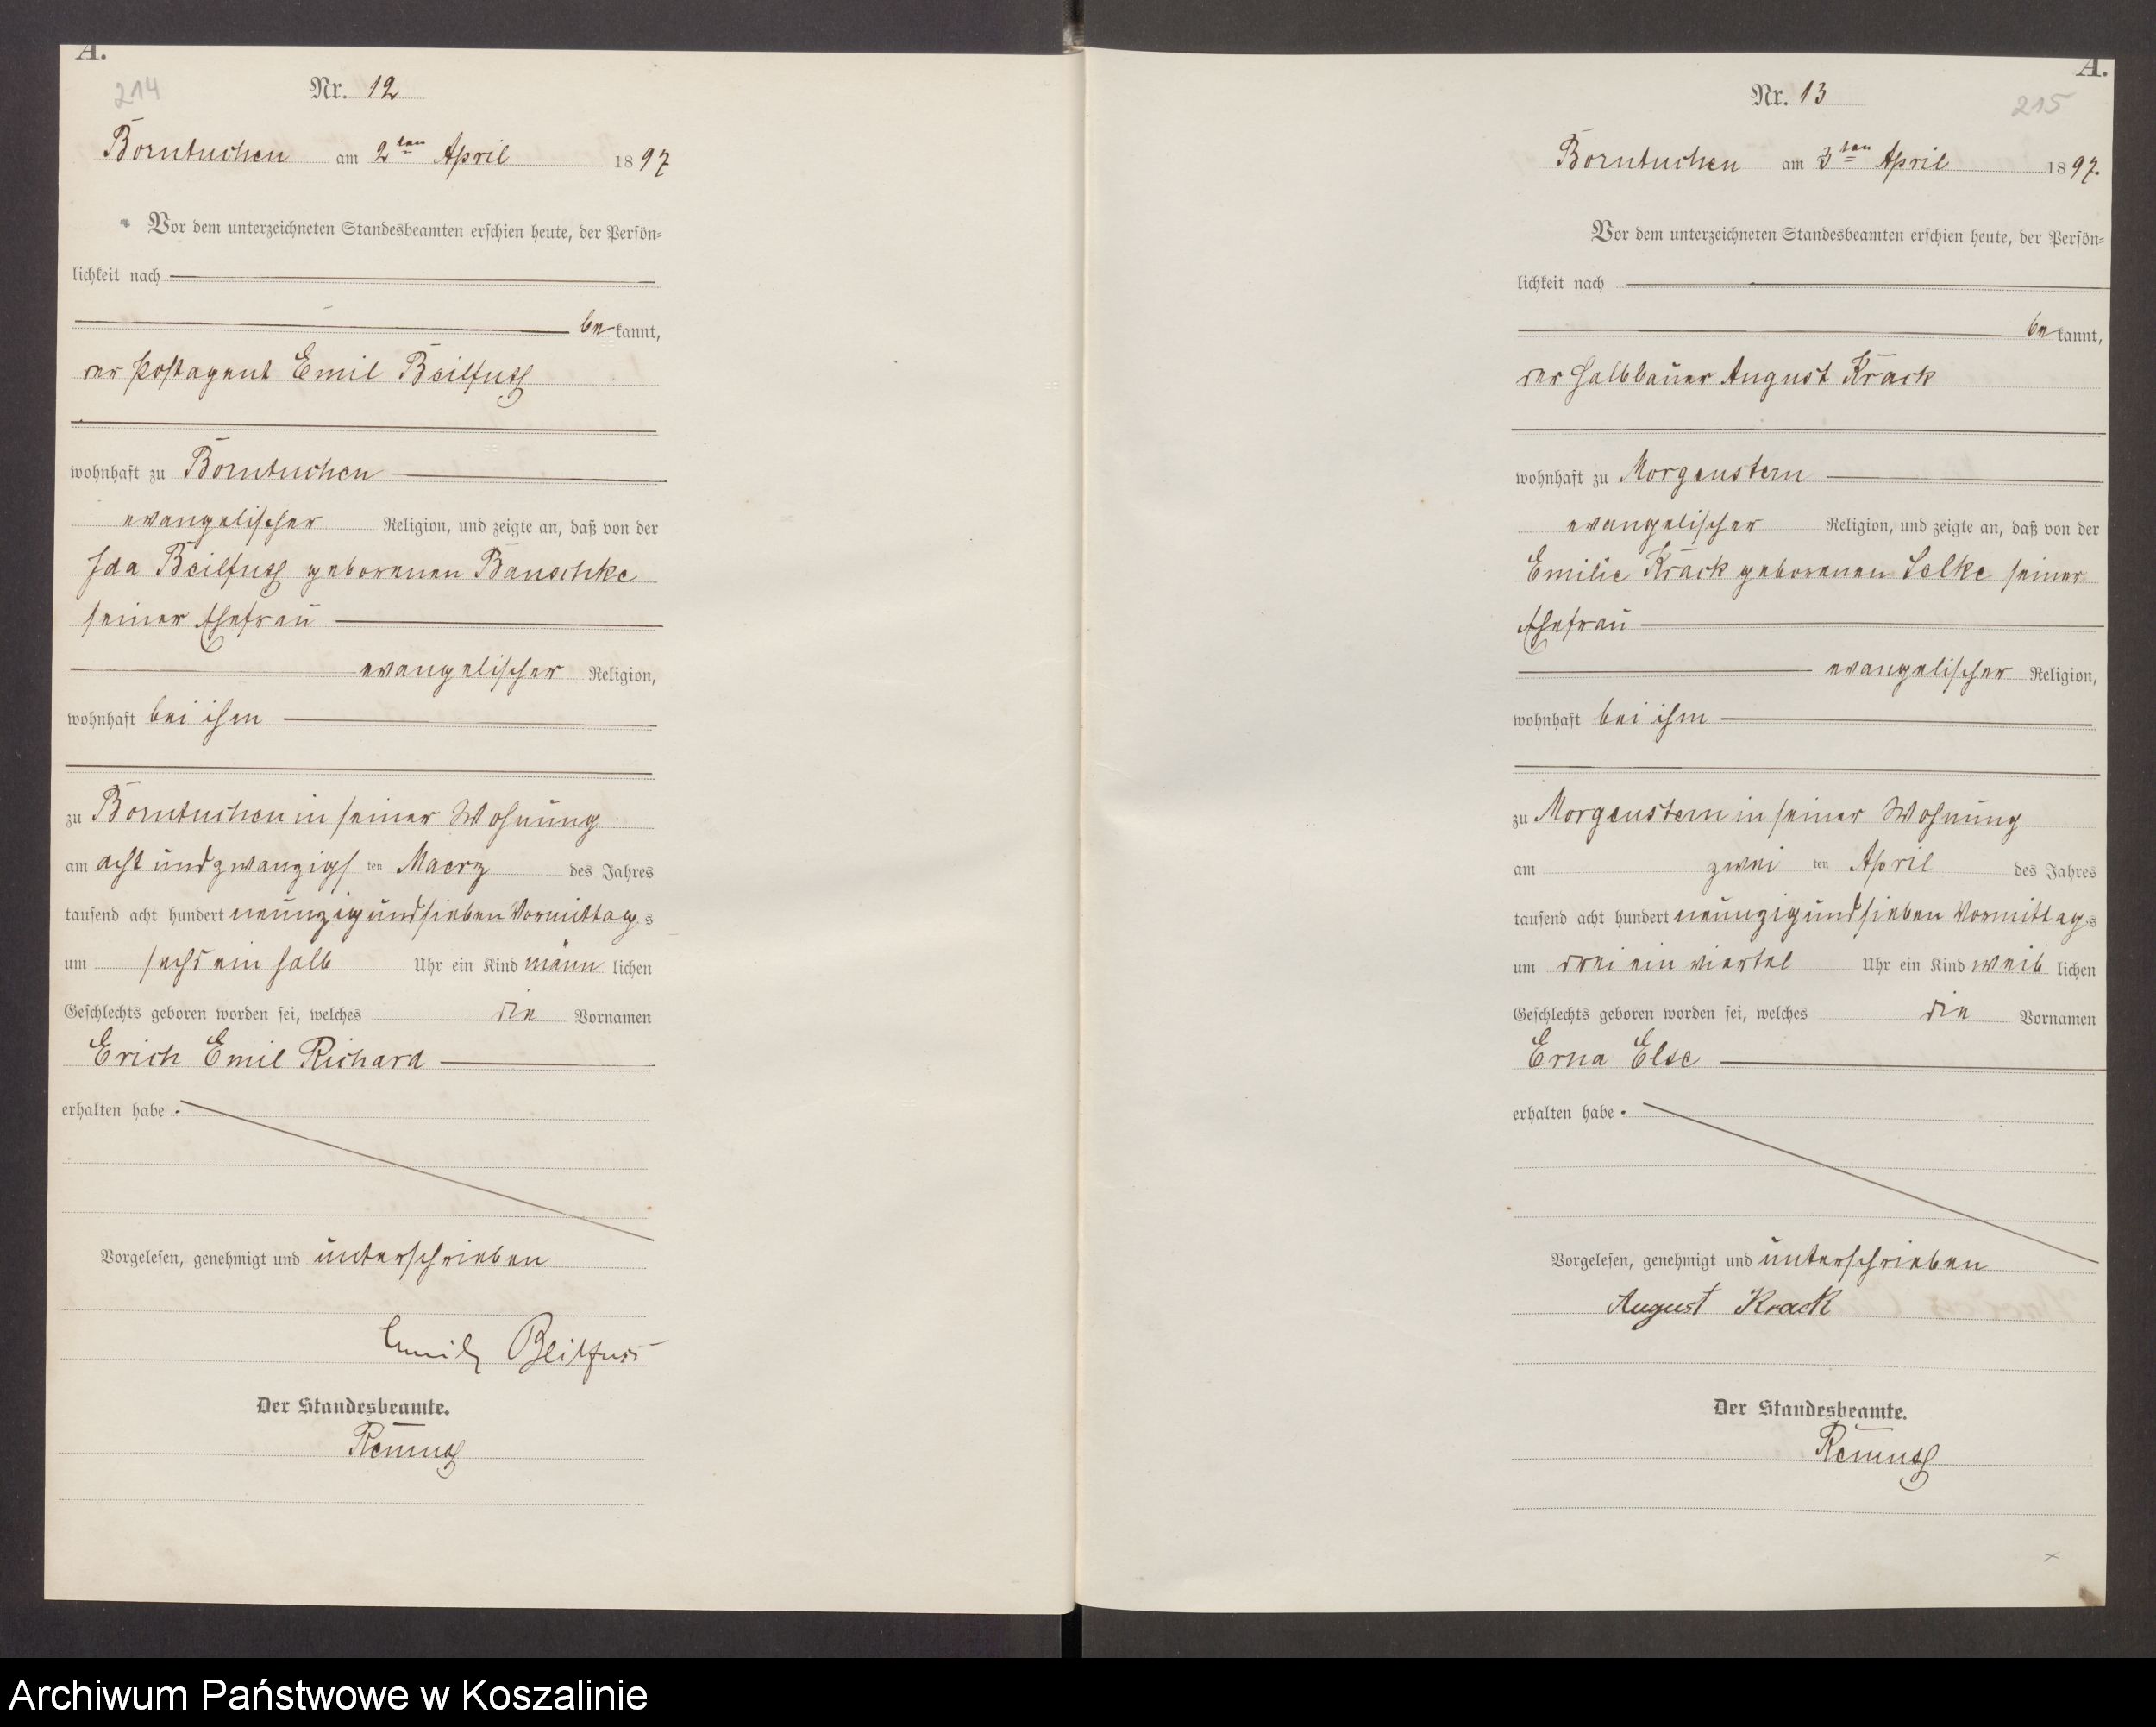 A.
214
Nr. 12
Borntuchen am 2ten April 1897
Vor dem unterzeichneten Standesbeamten erschien heute, der Persön=
lichkeit nach
bekannt,
der Postagent Emil Beilfuß
wohnhaft zu Borntuchen
evangelischer Religion, und zeigte an, daß von der
Ida Beilfuß geborenen Banschke
seiner Ehefrau
evangelischer Religion,
wohnhaft bei ihm
zu Borntuchen in seiner Wohnung
am acht und zwanzigsten Maerz des Jahres
tausend acht hundert neunzig und sieben Vormittags
um sechs ein halb Uhr ein Kind männlichen
Geschlechts geboren worden sei, welches die Vornamen
Erich Emil Richard
erhalten habe.
Vorgelesen, genehmigt und unterschrieben
Emil Beilfuss
Der Standesbeamte.
Remuß
A.
215
Nr. 13
Borntuchen am 3ten April 1897.
Vor dem unterzeichneten Standesbeamten erschien heute, der Persön=
lichkeit nach
bekannt,
der Halbbauer August Krack
wohnhaft zu Morgenstern
evangelischer Religion, und zeigte an, daß von der
Emilie Krack geborenen Selke seiner
Ehefrau
evangelischer Religion,
wohnhaft bei ihm
zu Morgenstern in seiner Wohnung
am zweiten April des Jahres
tausend acht hundert neunzig und sieben Vormittags
um drei ein viertel Uhr ein Kind weiblichen
Geschlechts geboren worden sei, welches die Vornamen
Erna Else
erhalten habe.
Vorgelesen, genehmigt und unterschrieben
August Krack
Der Standesbeamte.
Remuß
Archiwum Państwowe w Koszalinie